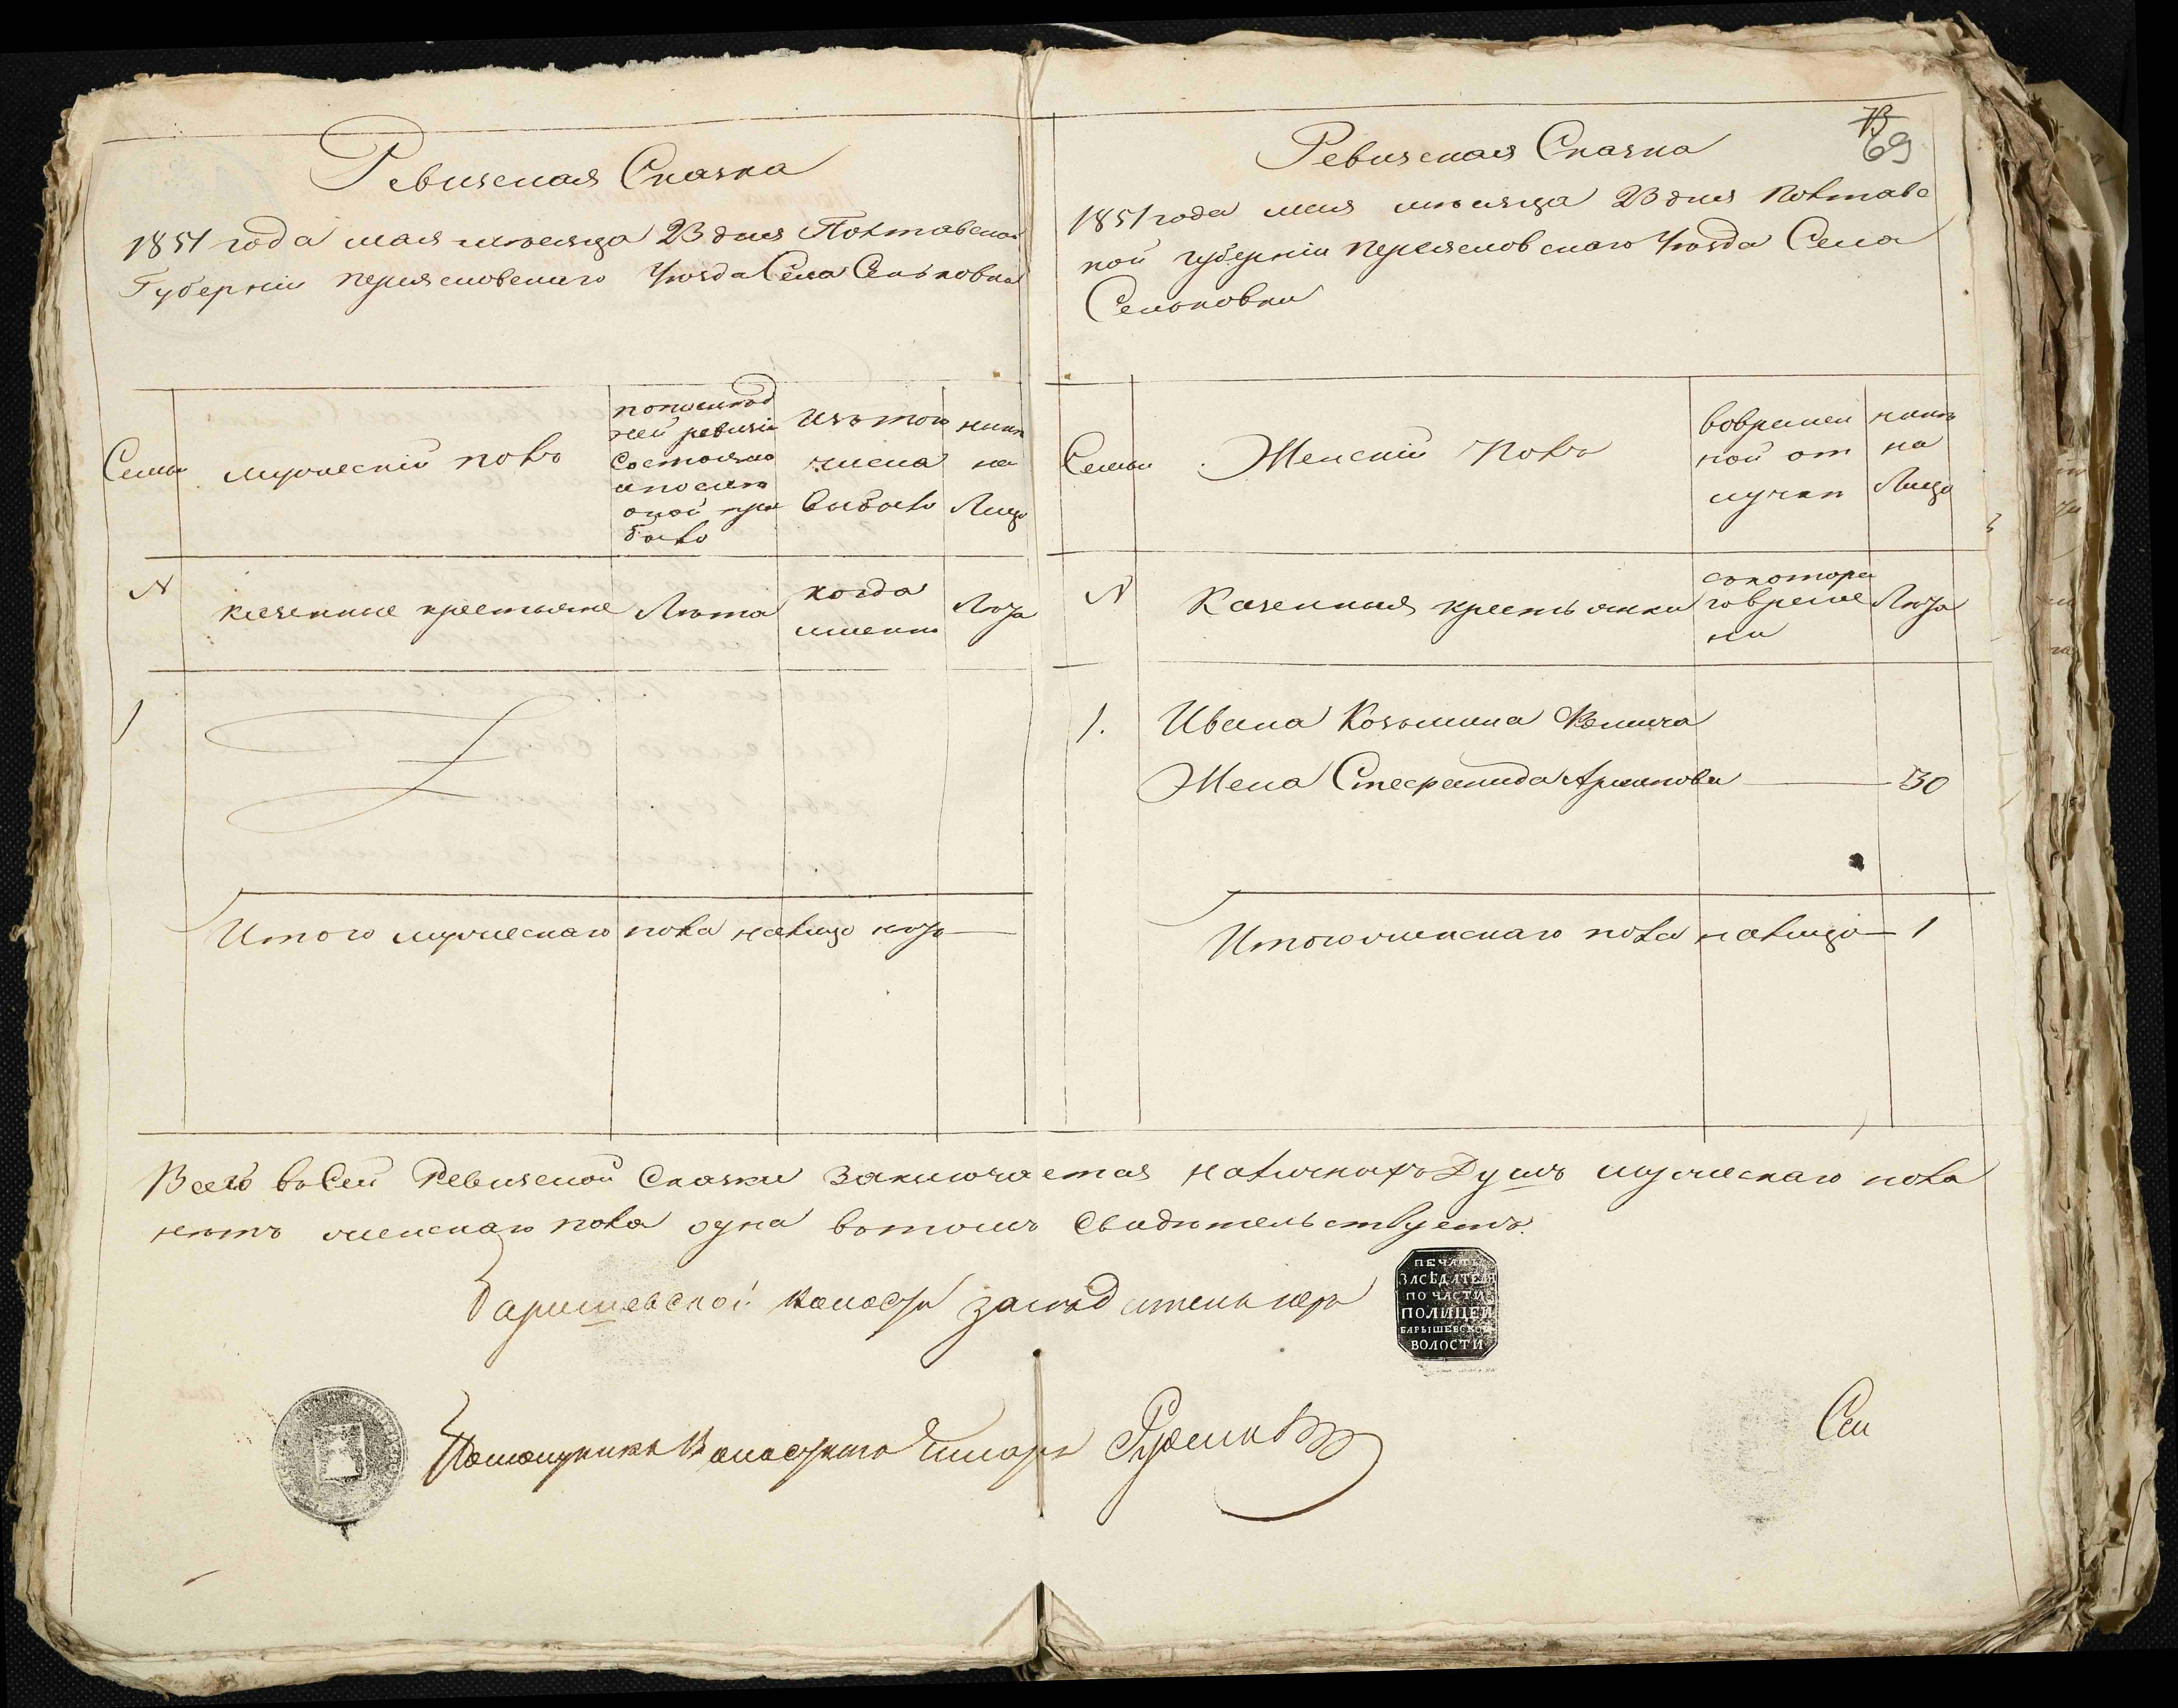 Ревизская Сказка
1851 года мая мѣсяца 23 дня Полтавской
Губерніи Переясловскаго Уѣзда Села Сеньковки
Семьи
мужескій полъ
попослѣд
ней ревизіи
состояло
ипослѣ
оной при
было
Изътого
числа
выбыло
нынѣ
на
Лицо
№
казенные крестьяне
Лѣта
когда
именно
Лѣта
1
Итого мужескаго пола налицо нѣтъ
69
Ревизская Сказка
1851 года мая мѣсяца 23 дня Полтавс
кой губерніи Переясловскаго Уѣзда Села
Сеньковки
Семьи
Женскій Полъ
вовремен
ной от
лучкѣ
нынѣ
на
Лицо
№
Казенныя крестьянки
съкотора
говреме
ни
Лѣта
1.
Ивана Козьмина
Жена Стефанида 30
Итогоженскаго пола налицо 1
Всего въсей Ревизской Сказки заключается наличныхъ Душъ мужескаго пола
нѣтъ женскаго пола одна вътомъ свидѣтельствуемъ.
Баришевской волости засѣдатель
ПЕЧАТЬ
ЗАСѢДАТЕЛЯ
ПО ЧАСТИ
ПОЛИЦЕЙ
БАРЫШЕВСКОЙ
ВОЛОСТИ
Помощникъ Волостнаго Писаря
Сел